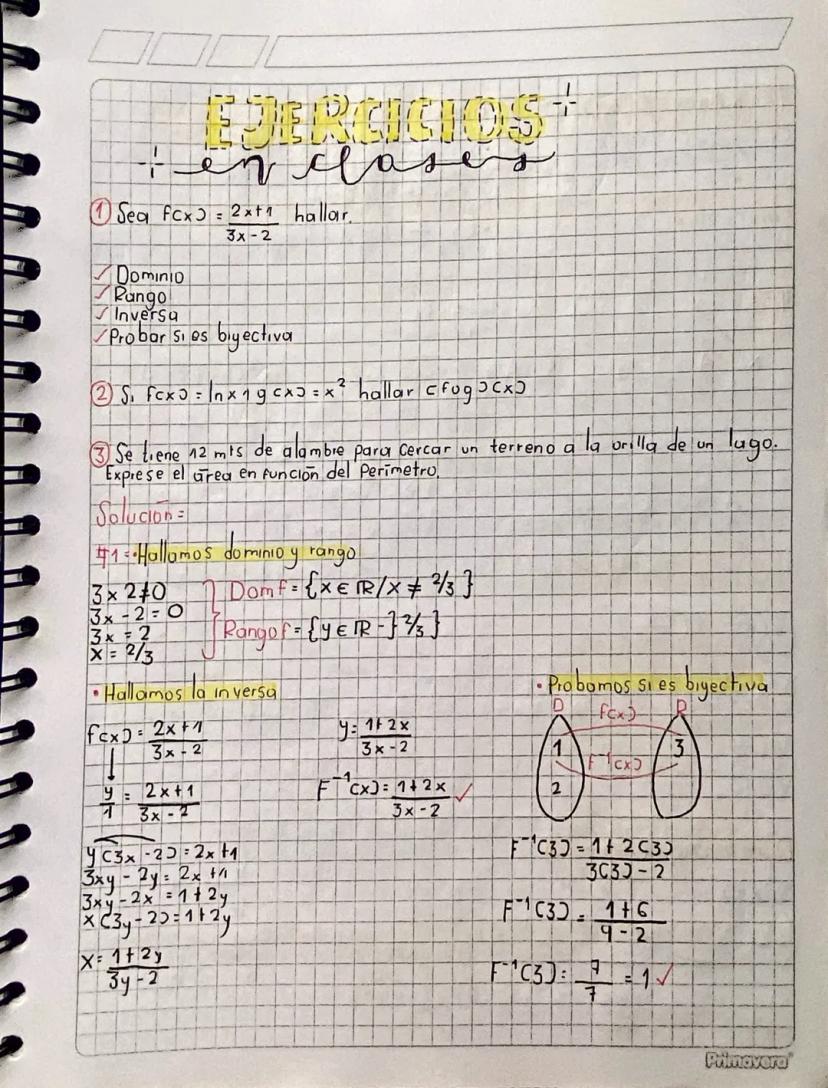 EJERCICIOS
en clases
① Sea f(x) = 2x+1 / 3x-2 hallar.
✓ Dominio
✓ Rango
✓ Inversa
✓ Probar si es biyectiva
② Si f(x) = ln x 1 g(x) = x² hallar (fog)(x)
③ Se tiene 12 mts de alambre para cercar un terreno a la orilla de un lago.
Exprese el área en función del Perímetro.
Solución=
#1=·Hallamos dominio y rango
3x 2≠0
3x - 2 = 0
3x = 2
x = 2/3
Dom f = {x ∈ IR / x ≠ 2/3}
Rango f = {y ∈ IR -} 2/3}
• Hallamos la inversa
f(x) = 2x+1 / 3x-2
y/1 = 2x+1 / 3x-2
y(3x-2) = 2x+1
3xy - 2y = 2x+1
3xy - 2x = 1+2y
x(3y-2) = 1+2y
x = 1+2y / 3y-2
y = 1+2x / 3x-2
F⁻¹(x) = 1+2x / 3x-2 ✓
• Probamos si es biyectiva
D f(x) R
1 3
F⁻¹(x)
2
F⁻¹(3) = 1+2(3) / 3(3)-2
F⁻¹(3) = 1+6 / 9-2
F⁻¹(3) = 7/7 = 1 ✓
Primavera®